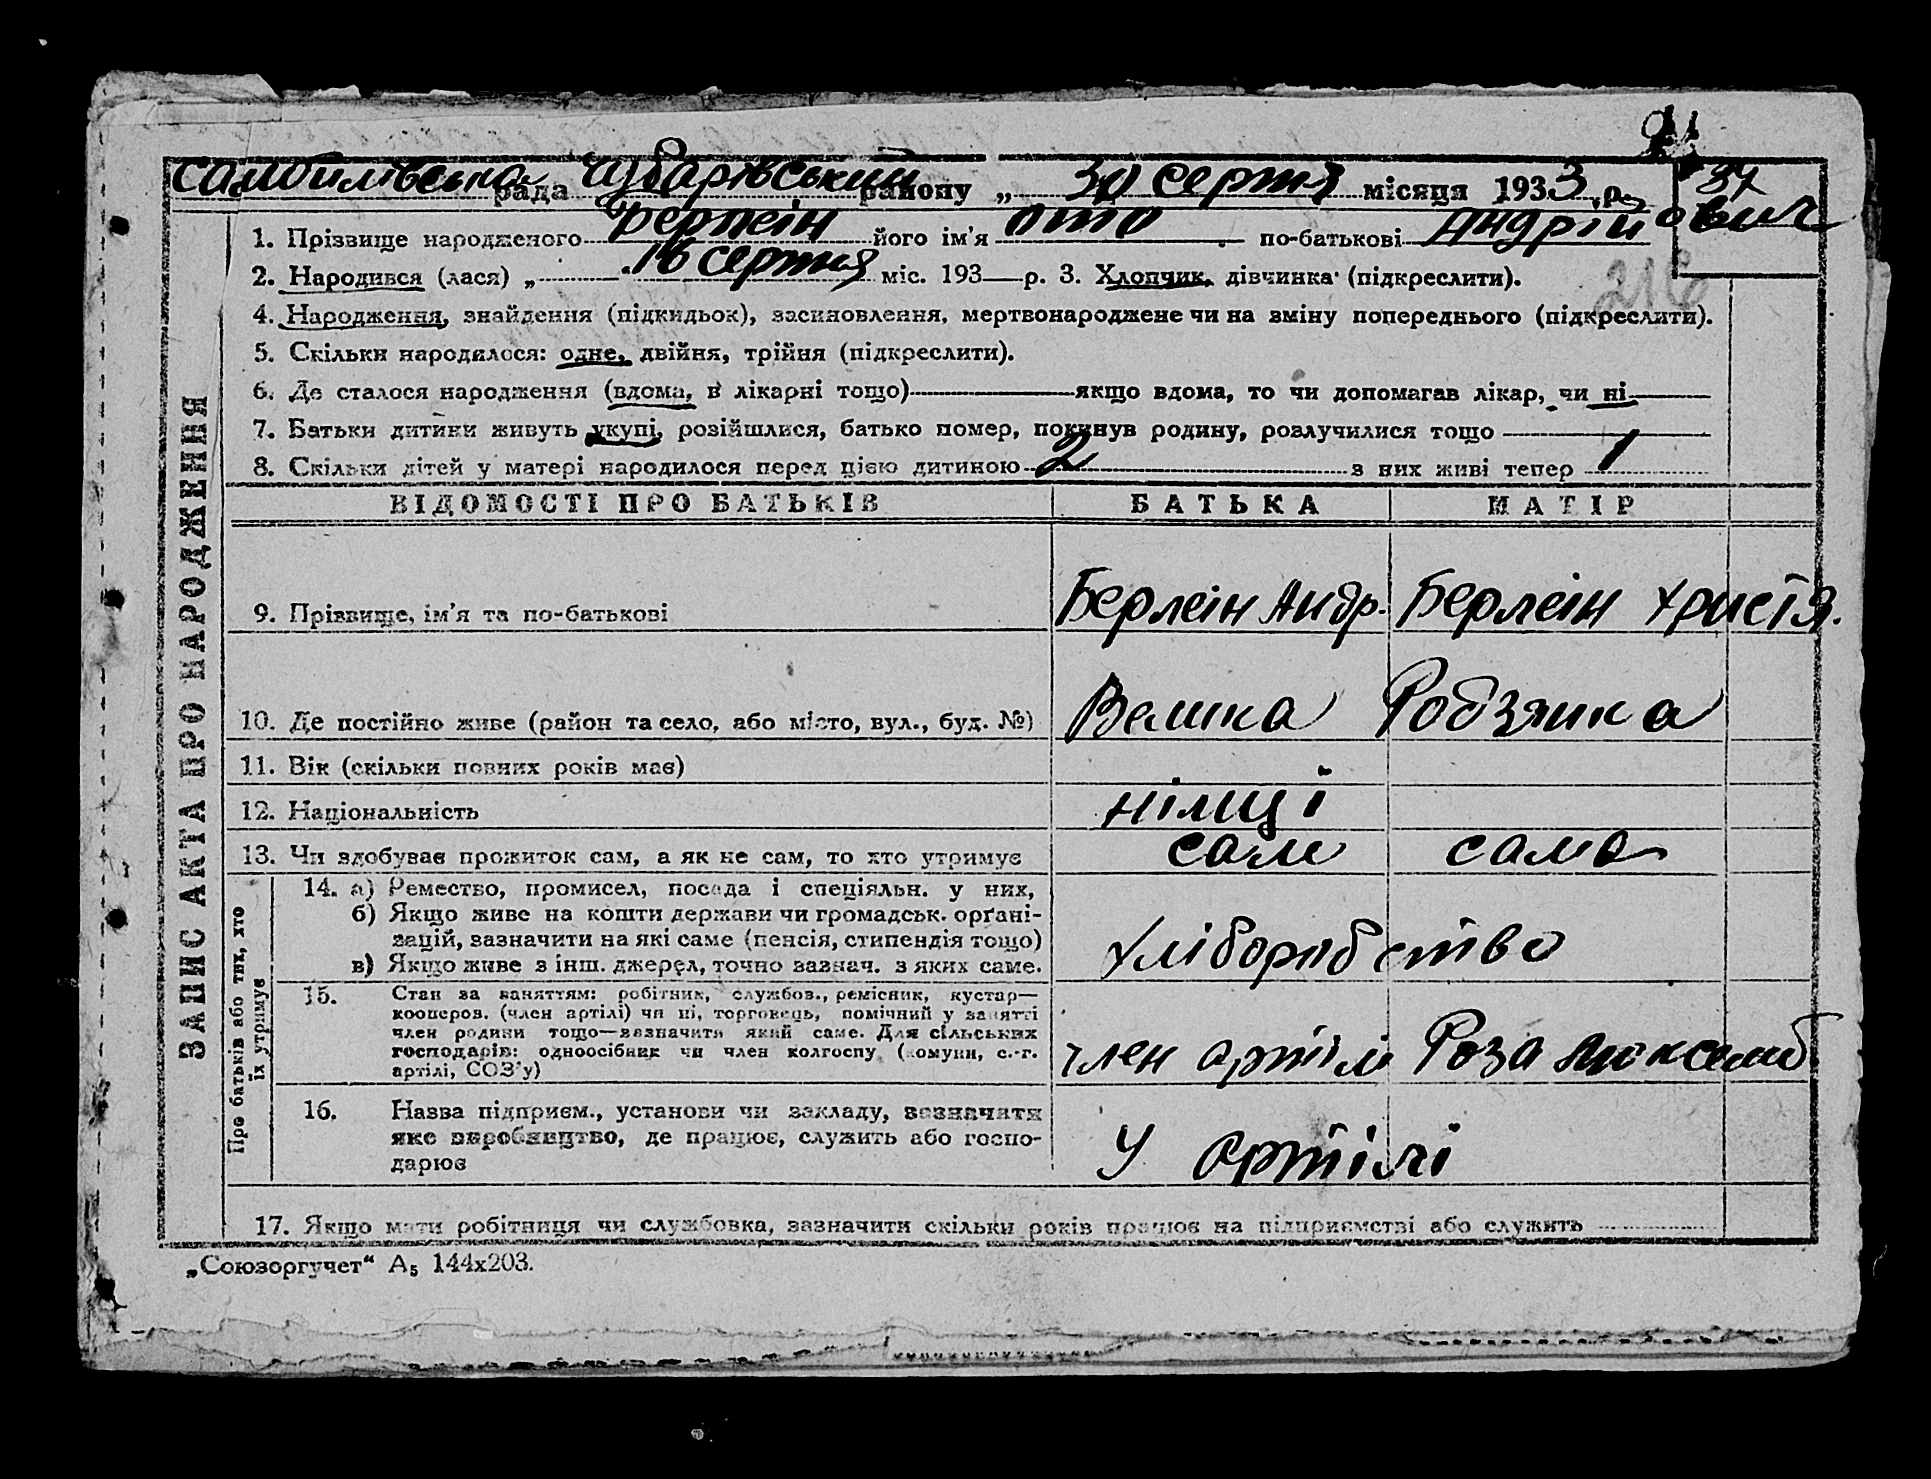 Самбилівська рада Чубарівський району „ 30 серпня місяця 1933 р. 37
1. Прізвище народженого Берлеін його ім'я Ото по-батькові Андрійович
2. Народився (лася) „ 16 серпня міс. 193 — р. 3. Хлопчик, дівчинка (підкреслити).
216
4. Народження, знайдення (підкидьок), засиновлення, мертвонароджене чи на зміну попереднього (підкреслити).
5. Скільки народилося: одне, двійня, трійня (підкреслити).
6. Де сталося народження (вдома, в лікарні тощо) — якщо вдома, то чи допомагав лікар, чи ні
7. Батьки дитини живуть укупі, розійшлися, батько помер, покинув родину, розлучилися тощо
8. Скільки дітей у матері народилося перед цією дитиною 2 з них живі тепер 1
ЗАПИС АКТА ПРО НАРОДЖЕННЯ
ВІДОМОСТІ ПРО БАТЬКІВ БАТЬКА МАТІР
9. Прізвище, ім'я та по-батькові Берлеін Андр. Берлеін Христя.
10. Де постійно живе (район та село, або місто, вул., буд. №) Велика Родзянка
11. Вік (скільки повних років має)
12. Національність німці
13. Чи здобуває прожиток сам, а як не сам, то хто утримує сам сама
Про батьків або тих, хто
їх утримує
14. а) Ремество, промисел, посада і спеціяльн. у них,
б) Якщо живе на кошти держави чи громадськ. орґані-
зацій, зазначити на які саме (пенсія, стипендія тощо)
в) Якщо живе з інш. джерел, точно зазнач. з яких саме.
хліборобство
15. Стан за заняттям: робітник, службов., ремісник, кустар—
кооперов. (член артілі) чи ні, торговець, помічний у занятті
член родини тощо—зазначити який саме. Для сільських
господарів: одноосібник чи член колгоспу (комуни, с.-г.
артілі, СОЗ'у)
член артілі Роза Люксемб.
16. Назва підприєм., установи чи закладу, зазначити
яке виробництво, де працює, служить або госпо-
дарює
У артілі
17. Якщо мати робітниця чи службовка, зазначити скільки років працює на підприємстві або служить
„Союзоргучет“ А5 144х203.